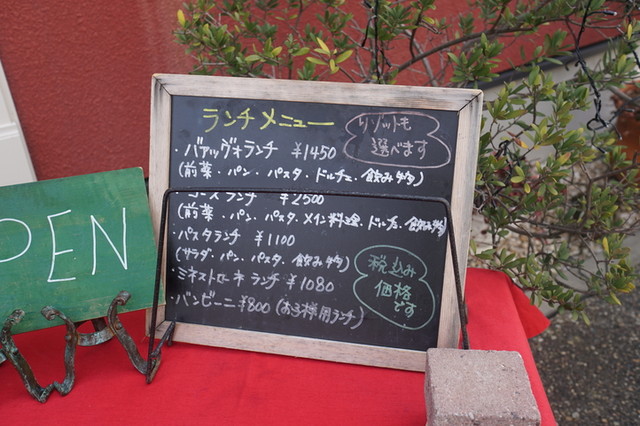 ランチメニュー
リゾットも
選べます
・バアッヴォランチ ¥1450
(前菜・パン・パスタ・ドルチェ・飲み物)
ースランチ ¥2500
(前菜・パン・パスタ・メイン料理・ドルチェ・飲み物)
・パスタランチ ¥1100
(サラダ・パン・パスタ・飲み物)
・ミネストローネランチ ¥1080
・バンビーニ ¥800 (お子様用ランチ)
税込み
価格
です
PEN